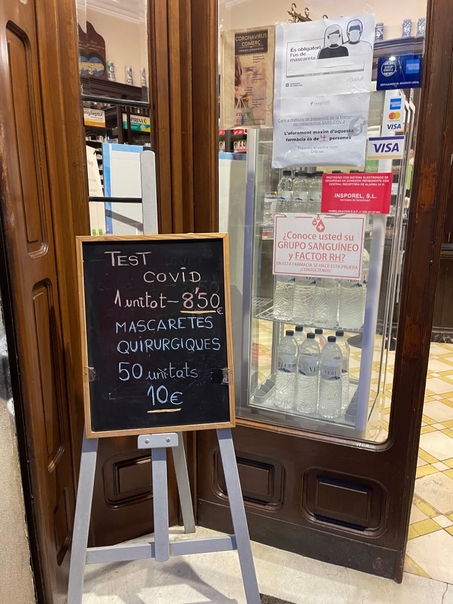 TEST
COVID
1 unitat - 8'50€
MASCARETES
QUIRURGIQUES
50 unitats
10€
CORONAVIRUS
COMERÇ
És obligatori
l'ús de
mascareta
L'aforament màxim d'aquesta
farmàcia és de 4 persones
VISA
VISA
INSPOREL, S.L.
¿Conoce usted su
GRUPO SANGUÍNEO
y FACTOR RH?
EN ESTA FARMACIA SE HACE ESTA PRUEBA
¡CONSÚLTENOS!